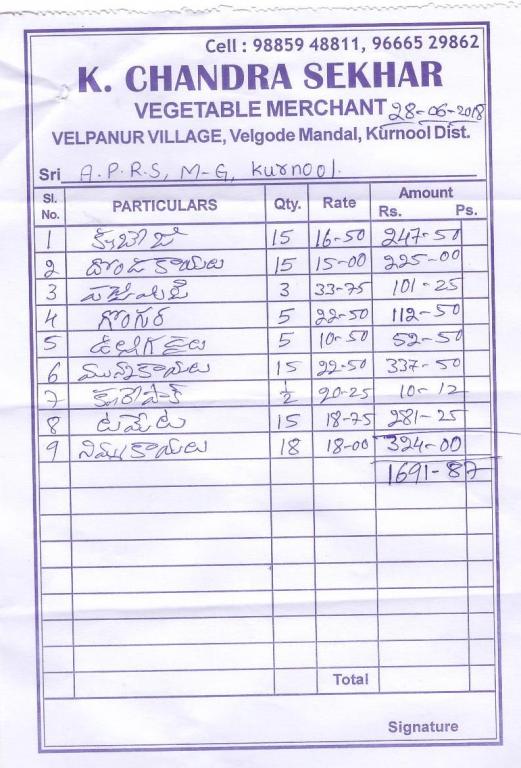 Cell : 98859 48811, 96665 29862
K. CHANDRA SEKHAR
VEGETABLE MERCHANT 28-06-2018
VELPANUR VILLAGE, Velgode Mandal, Kurnool Dist.
Sri A.P.R.S, M-G, Kurnool.
Sl. No. PARTICULARS Qty. Rate Amount Rs. Ps.
1 క్యాబేజీ 15 16-50 247-50
2 దొండకాయలు 15 15-00 225-00
3 పచ్చిమిర్చి 3 33-75 101-25
4 గోంగూర 5 22-50 112-50
5 ఉల్లిగడ్డలు 5 10-50 52-50
6 మునక్కాయలు 15 22-50 337-50
7 ½ 20-25 10-12
8 టమోటా 15 18-75 281-25
9 నిమ్మకాయలు 18 18-00 324-00
1691-87
Total
Signature